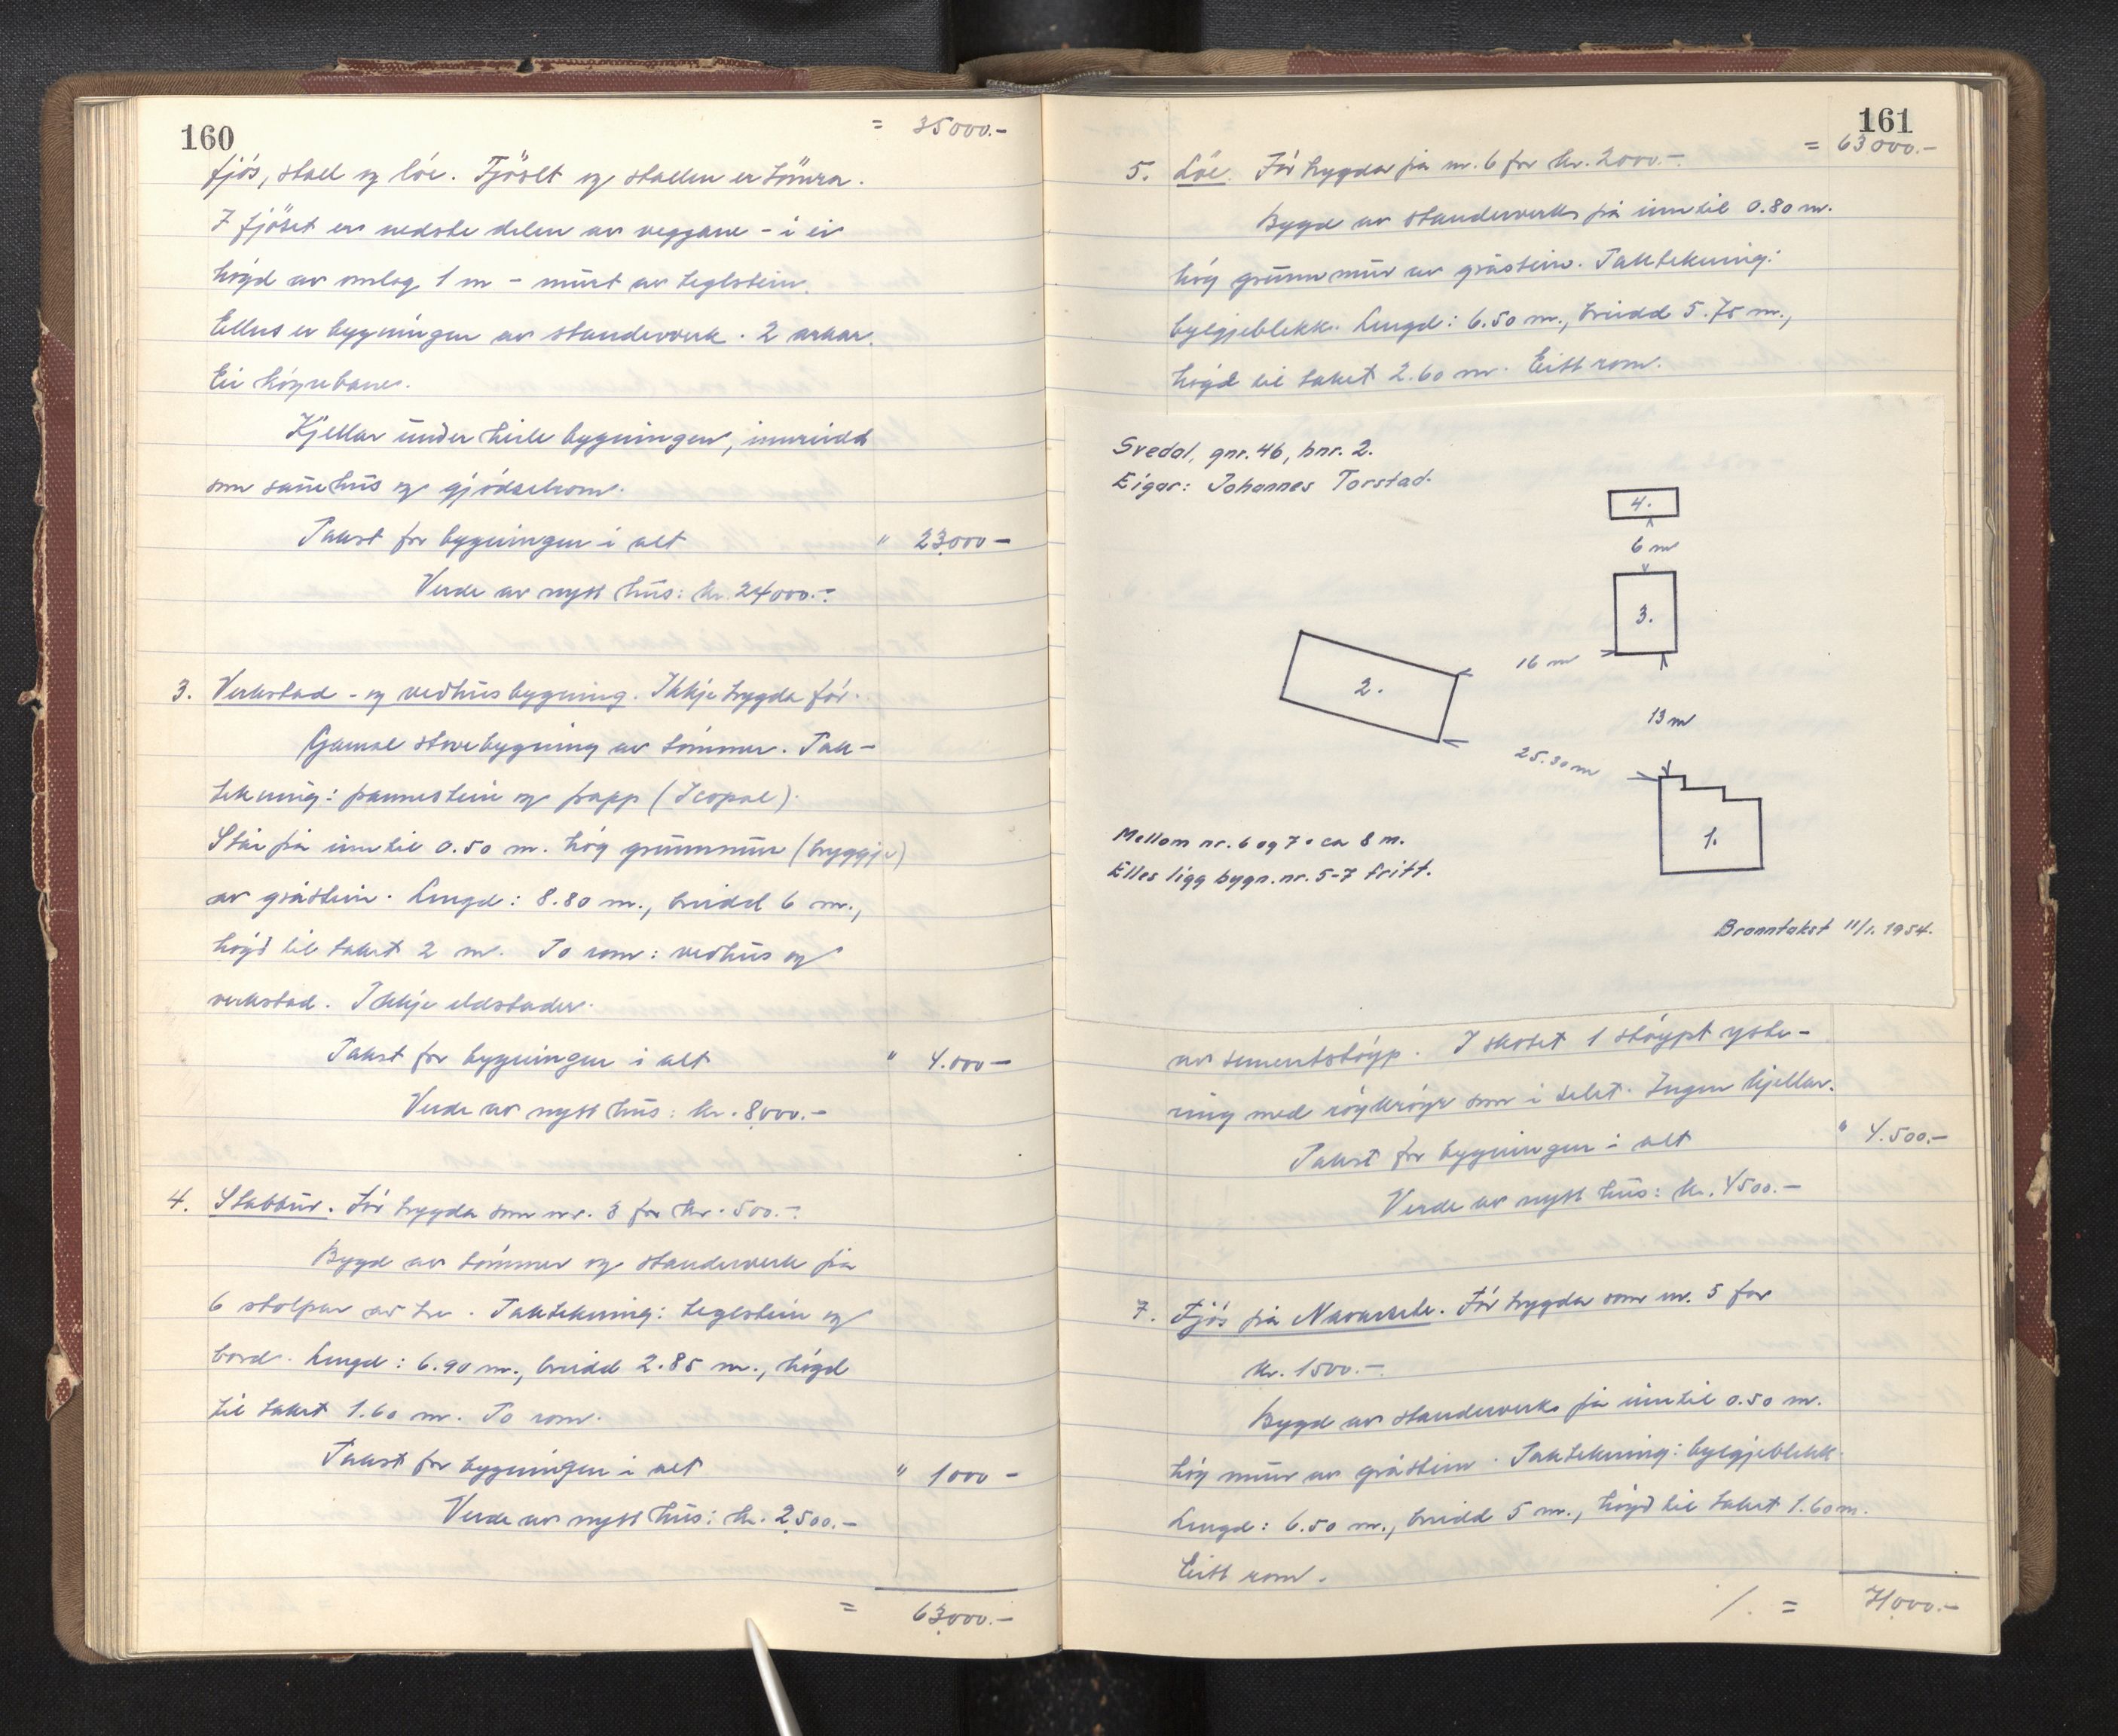 160
= 35000.-
fjøs, stall og løe. Fjøset og stallen er tømra.
I fjøset er nedste delen av veggane - i ei
høgd av omlag 1 m - murt av teglstein.
Elles er bygningen av standerverk. 2 arkar.
Ei køyrebane.
Kjellar under heile bygningen, innreidd
som sauehus og gjødselrom.
Takst for bygningen i alt " 23.000 -
Verde av nytt hus: kr. 24000.-
3. Verkstad - og vedhusbygning. Ikkje trygda før.
Gamal stovebygning av tømmer. Tak-
tekning: pannestein og papp (Icopal).
Står på inntil 0.50 m. høg grunnmur (bryggje)
av gråstein. Lengd: 8.80 m., breidd 6 m.,
høgd til taket 2 m. To rom: vedhus og
verkstad. Ikkje eldstader.
Takst for bygningen i alt " 4.000 -
Verde av nytt hus: kr. 8000.-
4. Stabbur. Før trygda som nr. 3 for kr. 500.-
Bygd av tømmer og standerverk på
6 stolpar av tre. Taktekning: teglstein og
bord. Lengd: 6.90 m., breidd 2.85 m., høgd
til taket 1.60 m. To rom.
Takst for bygningen i alt " 1000 -
Verde av nytt hus: kr. 2500.-
= 63.000.-
161
= 63000.-
5. Løe. Før trygda på nr. 6 for kr. 2000.-
Bygd av standerverk på inntil 0.80 m.
høg grunnmur av gråstein. Taktekning:
bylgjeblekk. Lengd: 6.50 m., breidd 5.75 m.,
høgd til taket 2.60 m. Eitt rom.
Svedal, gnr. 46, bnr. 2.
Eigar: Johannes Torstad.
4.
6 m
3.
16 m
2.
13 m
25.30 m
1.
Mellom nr. 6 og 7 = ca 8 m.
Elles ligg bygn. nr. 5-7 fritt.
Branntakst 11/1. 1954.
av sementstøyp. I skotet 1 støypt yste-
ring med røykrøyr som i selet. Ingen kjellar.
Takst for bygningen i alt " 4.500.-
Verde av nytt hus: kr. 4500.-
7. Fjøs på Før trygda som nr. 5 for
kr. 1500.-
Bygd av standerverk på inntil 0.50 m.
høg mur av gråstein. Taktekning: bylgjeblekk.
Lengd: 6.50 m., breidd 5 m., høgd til taket 1.60 m.
Eitt rom.
/. = 71.000.-